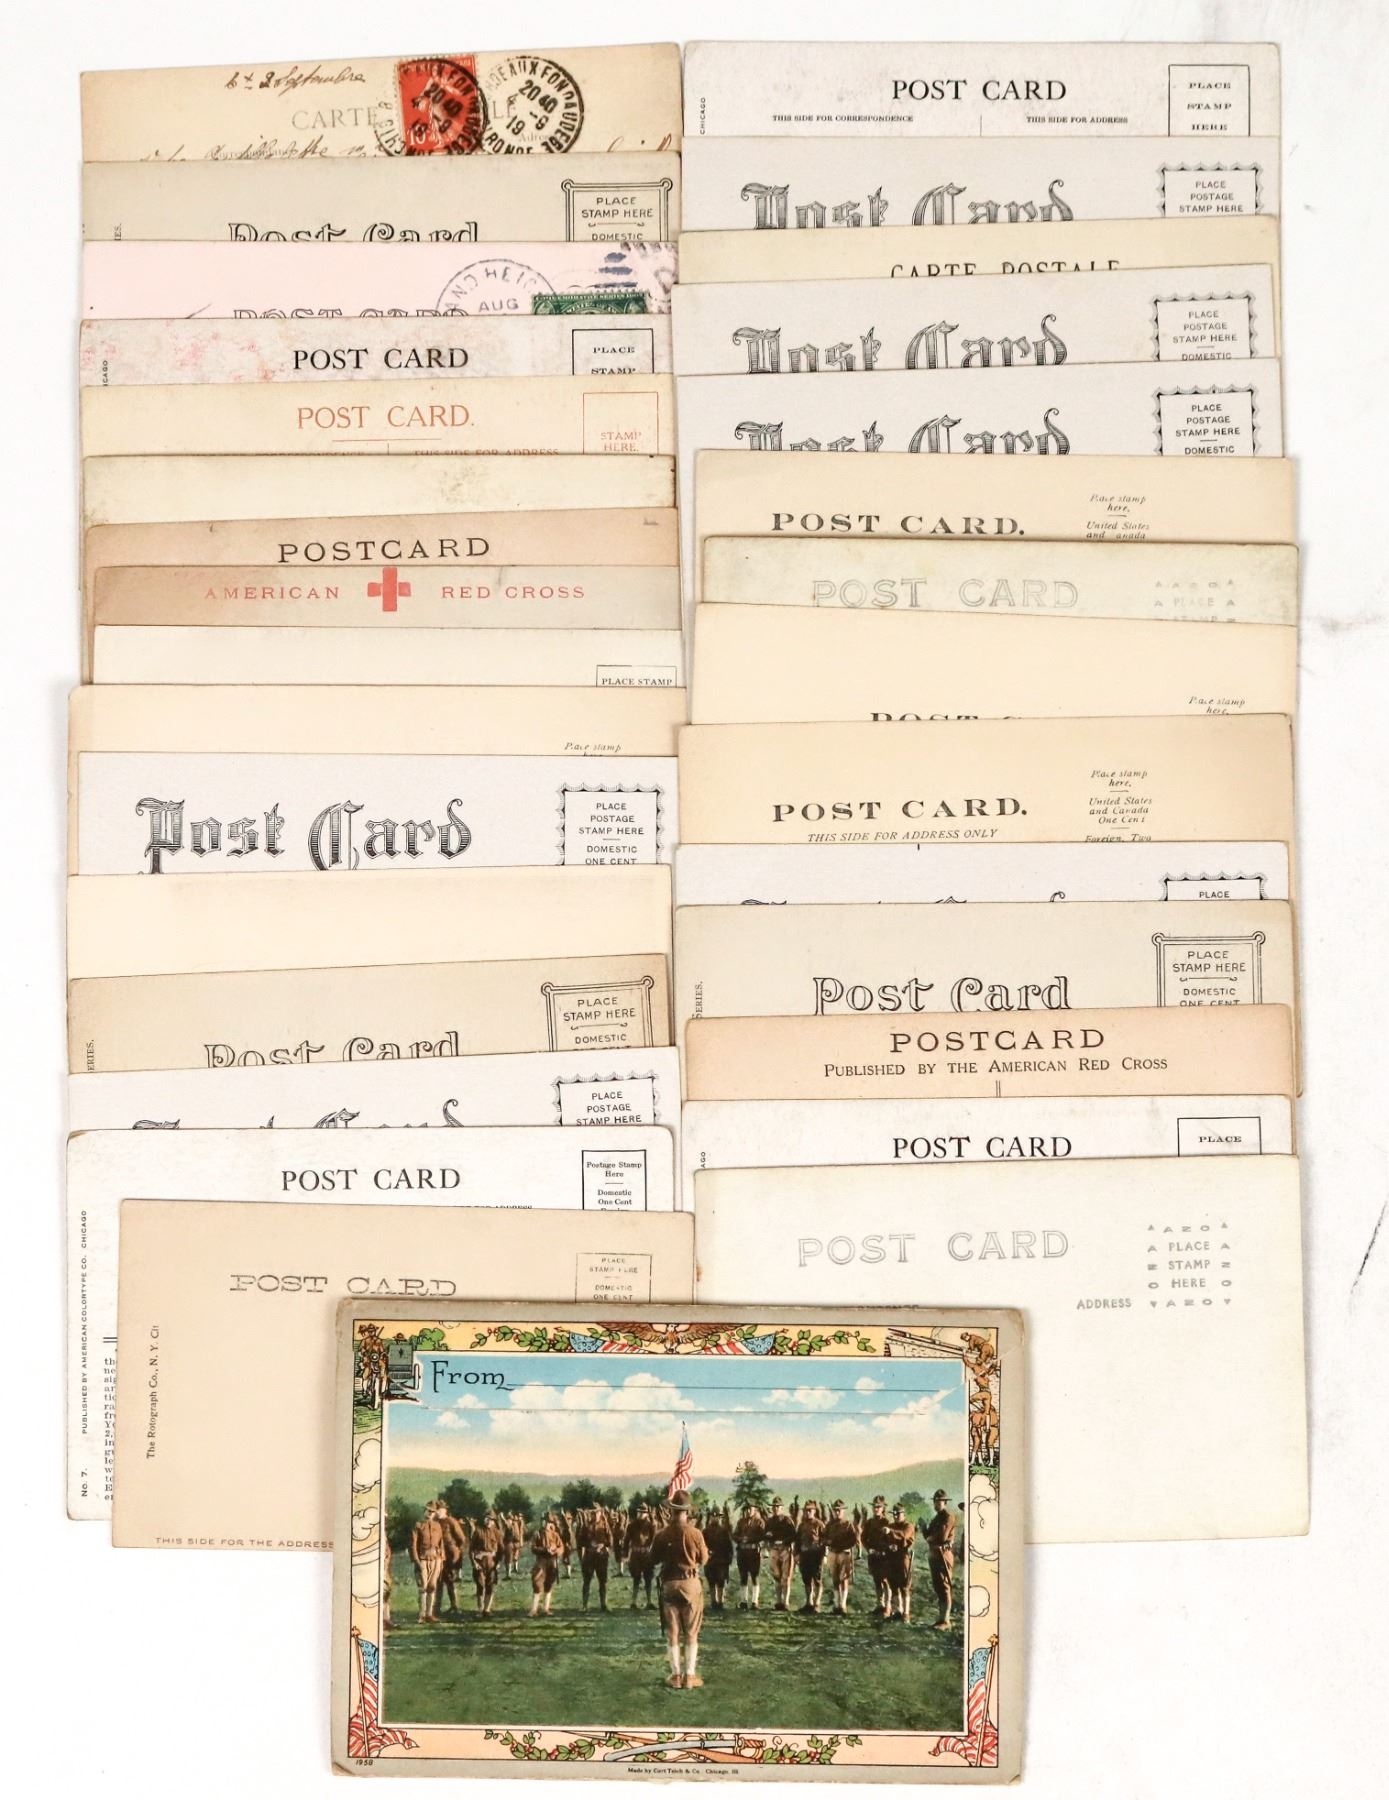 6 + 2 Septembre
CARTE
10
BORDEAUX FONDAUDEGE
20 40
4 - 9
19
GIRONDE
Post Card
PLACE
STAMP HERE
DOMESTIC
POST CARD
AUG
POST CARD
PLACE
STAMP
POST CARD.
THIS SIDE FOR ADDRESS
STAMP
HERE.
POSTCARD
AMERICAN RED CROSS
PLACE STAMP
Place stamp
Post Card
PLACE
POSTAGE
STAMP HERE
DOMESTIC
ONE CENT
Post Card
PLACE
STAMP HERE
DOMESTIC
Post Card
PLACE
POSTAGE
STAMP HERE
POST CARD
Postage Stamp
Here
Domestic
One Cent
No. 7. PUBLISHED BY AMERICAN COLORTYPE CO. CHICAGO
POST CARD
PLACE
STAMP HERE
DOMESTIC
ONE CENT
The Rotograph Co., N. Y. Cit
THIS SIDE FOR THE ADDRESS
CHICAGO
POST CARD
THIS SIDE FOR CORRESPONDENCE
THIS SIDE FOR ADDRESS
PLACE
STAMP
HERE
Post Card
PLACE
POSTAGE
STAMP HERE
CARTE POSTALE
Post Card
PLACE
POSTAGE
STAMP HERE
DOMESTIC
Post Card
PLACE
POSTAGE
STAMP HERE
DOMESTIC
POST CARD.
Place stamp
here.
United States
and Canada
POST CARD
AZO
PLACE
STAMP
POST C
Place stamp
here.
POST CARD.
THIS SIDE FOR ADDRESS ONLY
Place stamp
here.
United States
and Canada
One Cent
Foreign, Two
PLACE
SERIES.
Post Card
PLACE
STAMP HERE
DOMESTIC
ONE CENT
POSTCARD
PUBLISHED BY THE AMERICAN RED CROSS
POST CARD
PLACE
POST CARD
AZO
PLACE
STAMP
HERE
AZO
ADDRESS
From
1958
Made by Curt Teich & Co. Chicago, Ill.